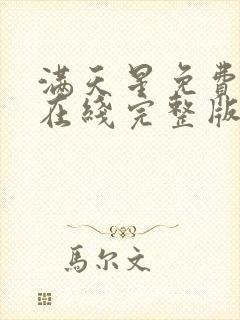 满天星免費
在綫完整版
馬尔文